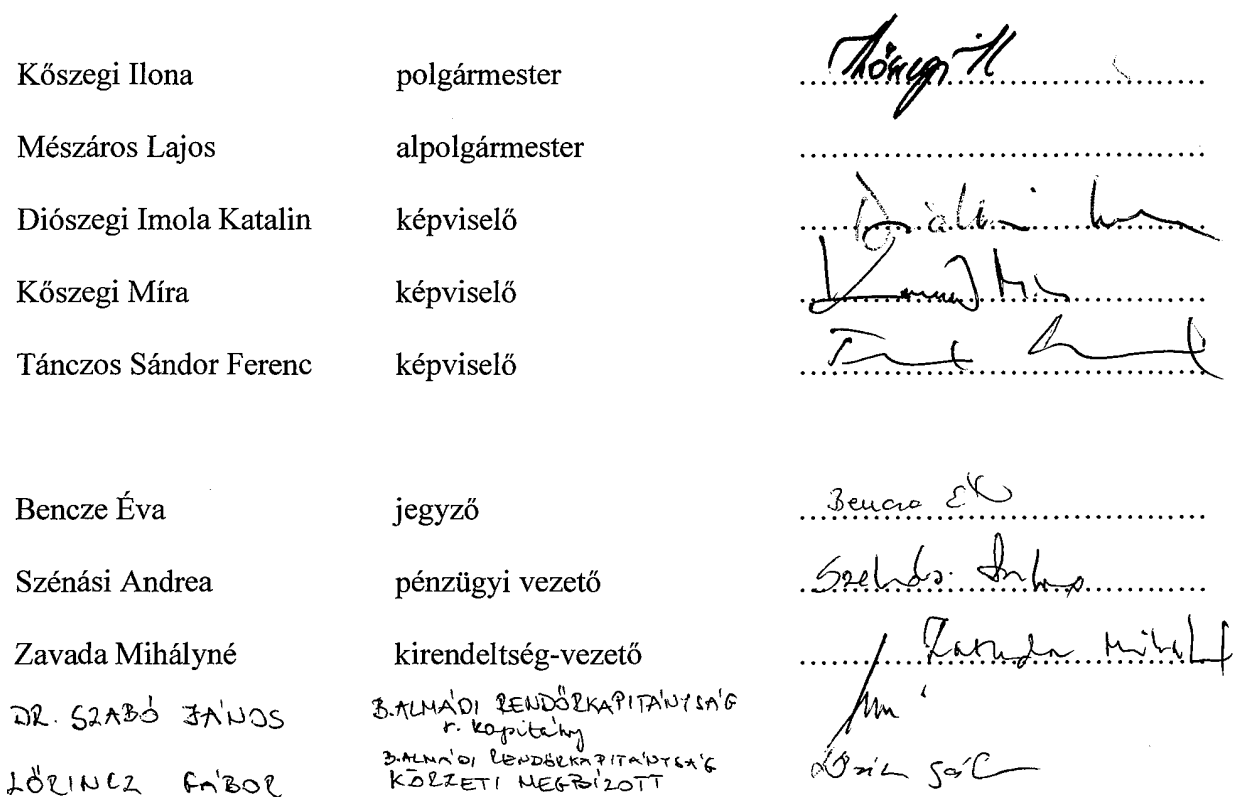 Kőszegi Ilona polgármester Kőszegi Il
Mészáros Lajos alpolgármester
Diószegi Imola Katalin képviselő
Kőszegi Míra képviselő
Tánczos Sándor Ferenc képviselő
Bencze Éva jegyző Bencze Év
Szénási Andrea pénzügyi vezető
Zavada Mihályné kirendeltség-vezető Zavada Mihály
DR. SZABÓ JÁNOS B.ALMÁDI RENDŐRKAPITÁNYSÁG
r. kapitány
B.ALMÁDI RENDŐRKAPITÁNYSÁG
LŐRINCZ GÁBOR KÖRZETI MEGBÍZOTT